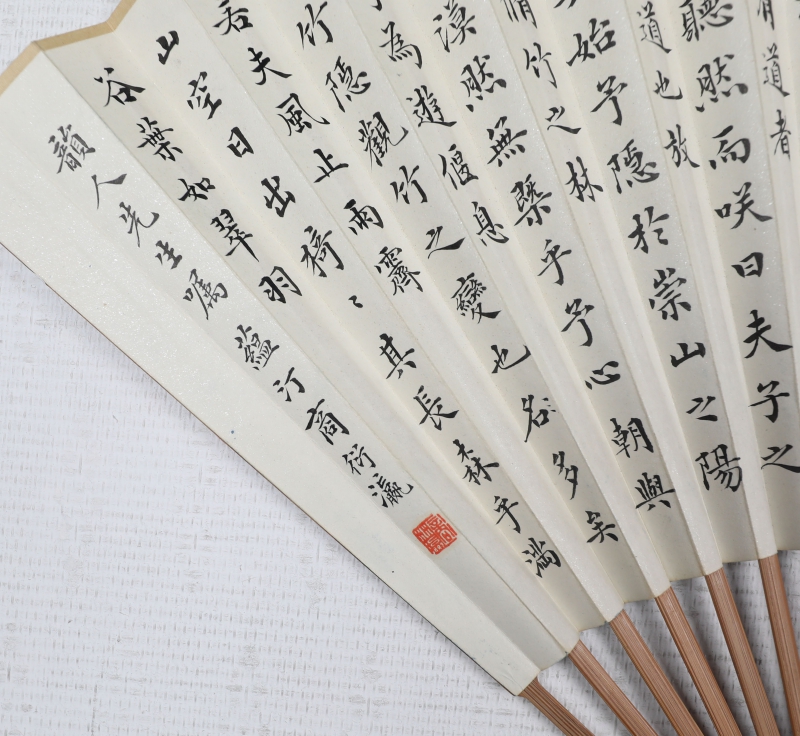 道者
聽然而咲曰夫子之
道也放
始予隱於崇山之陽
竹之林
漠然無槩乎予心朝與
為遊偃息
竹隱觀竹之變也名多矣
若夫風止雨霽
山空日出猗〻其長森乎滿
谷葉如翠羽
韻人先生囑 蘊汀商衍瀛